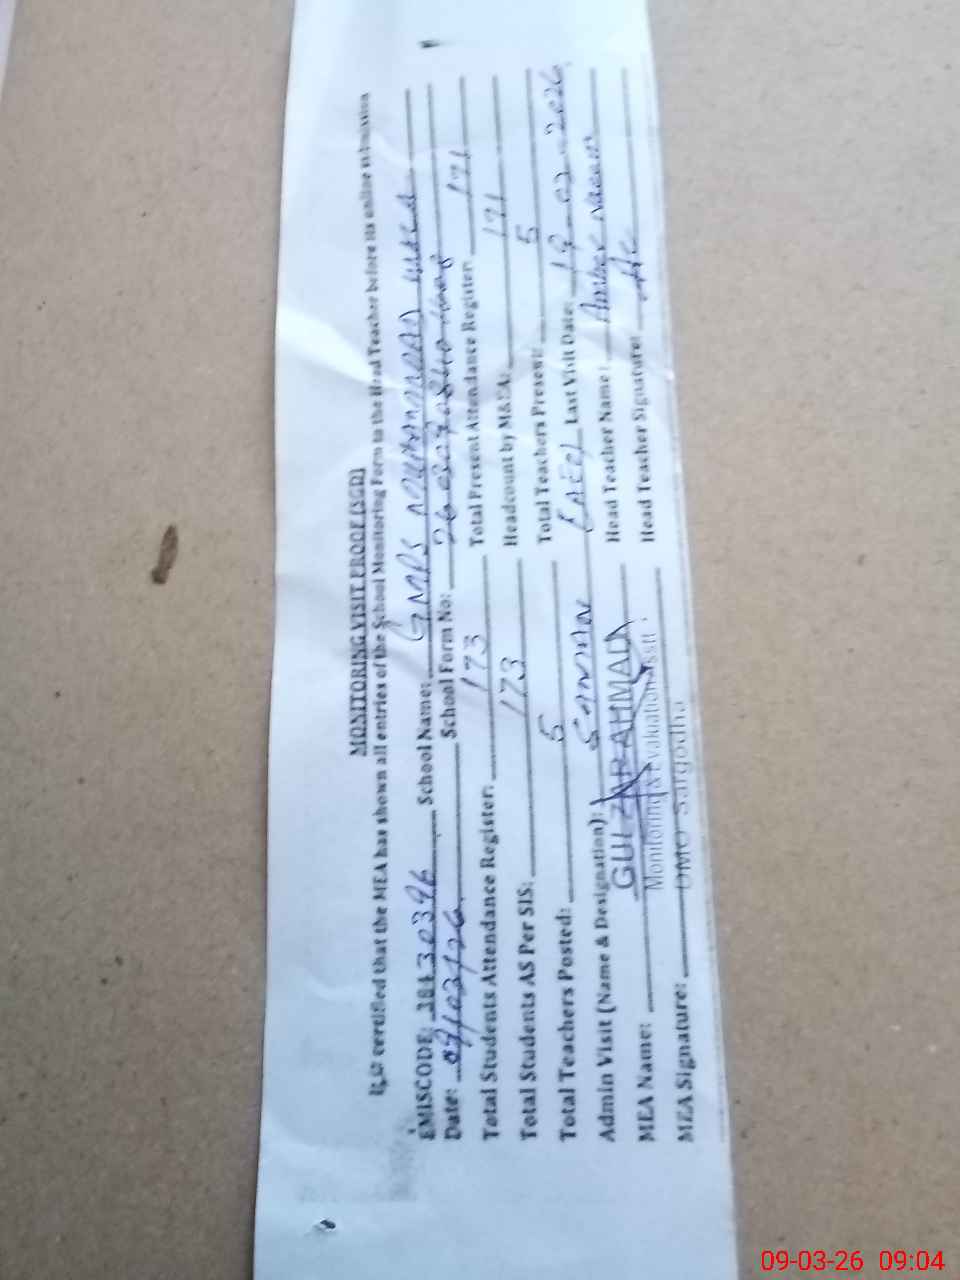 MONITORING VISIT PROOF (SGD)
It is certified that the MEA has shown all entries of the School Monitoring Form to the Head Teacher before its online submission
EMISCODE: 38430396 School Name: GMPS
Date: 09/03/26 School Form No:
Total Students Attendance Register: 173 Total Present Attendance Register: 171
Total Students AS Per SIS: 173 Headcount by M&EA: 171
Total Teachers Posted: 5 Total Teachers Present: 5
Admin Visit (Name & Designation): (AEO) Last Visit Date: 19-02-2026
MEA Name: GULZAR AHMAD Head Teacher Name: Amber Naeem
Monitoring & Evaluation Asstt.
MEA Signature: DMO Sargodha Head Teacher Signature:
09-03-26 09:04